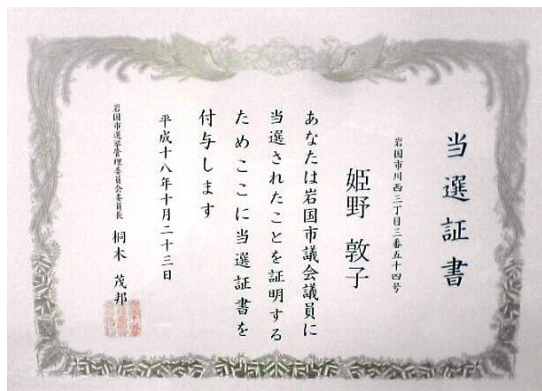 当選証書
岩国市川西三丁目三番五十四号
姫野敦子
あなたは岩国市議会議員に
当選されたことを証明する
ためここに当選証書を
付与します
平成十八年十月二十三日
岩国市選挙管理委員会委員長 桐木茂邦